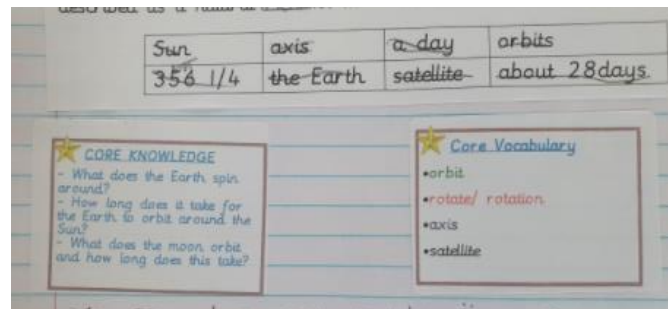 described as a
Sun axis a day orbits
356 1/4 the Earth satellite about 28days.
CORE KNOWLEDGE
- What does the Earth spin
around?
- How long does it take for
the Earth to orbit around the
Sun?
- What does the moon orbit
and how long does this take?
Core Vocabulary
•orbit
•rotate/ rotation
•axis
•satellite